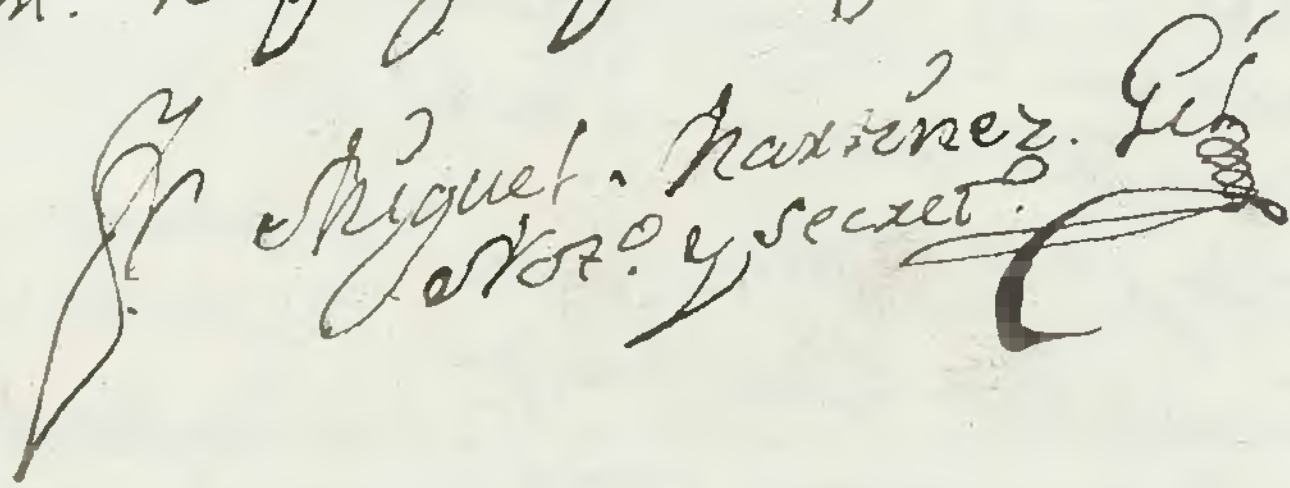 Fr. Miguel. Martinez. Gil
Not.º y Secret.º